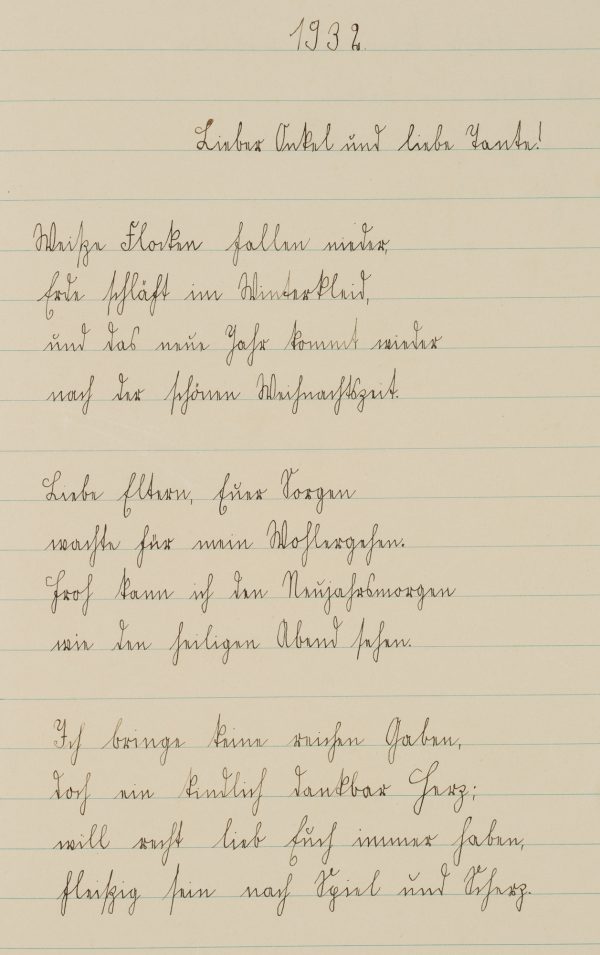 1932.
Lieber Onkel und liebe Tante!
Weiße Flocken fallen nieder,
Erde schläft im Winterkleid,
und das neue Jahr kommt wieder
nach der schönen Weihnachtszeit.
Liebe Eltern, Euer Sorgen
wachte für mein Wohlergehen.
Froh kann ich den Neujahrsmorgen
wie den heiligen Abend sehen.
Ich bringe keine reichen Gaben,
doch ein kindlich dankbar Herz;
will recht lieb Euch immer haben,
fleißig sein nach Spiel und Scherz.